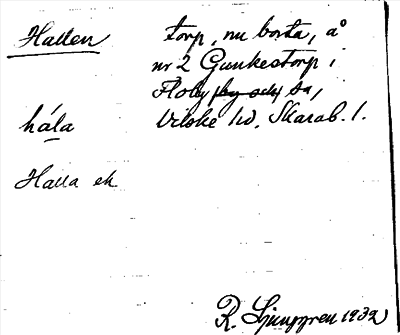 Hallen
torp, nu borta, å
nr 2 Gunkestorp i
Floby (by och) sn,
Vilske hd, Skarab. l.
hála
Halla ek
R. Ljunggren 1932